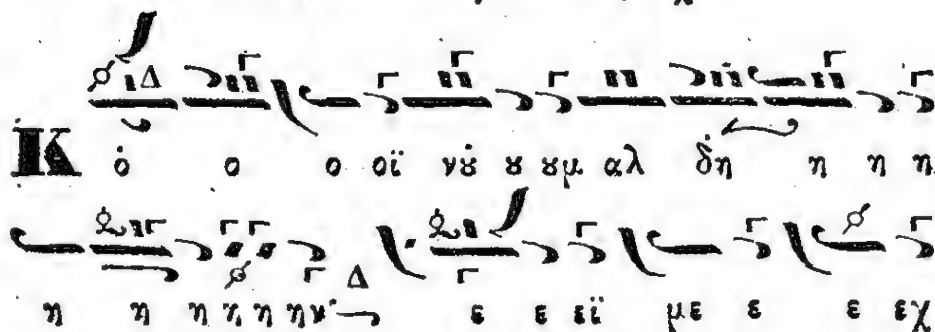 Κ ὁ ο ο οϊ νȣ̇ ȣ ȣμ αλ δ̇η η η η
η η η η η ην ε ε εϊ με ε ε εχ